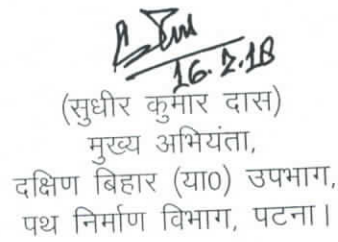 16.2.18
(सुधीर कुमार दास)
मुख्य अभियंता,
दक्षिण बिहार (या०) उपभाग,
पथ निर्माण विभाग, पटना।